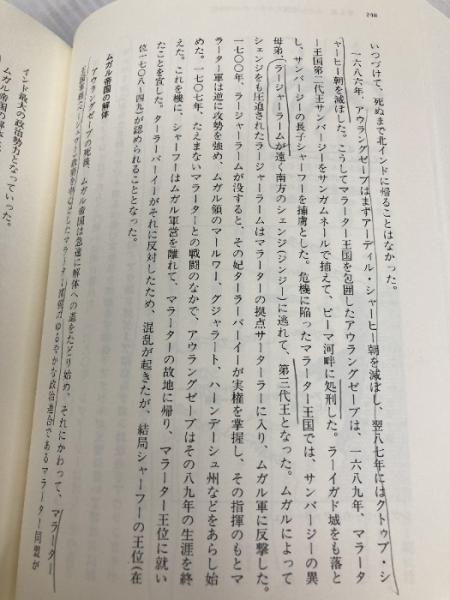 298
いつづけて、死ぬまで北インドに帰ることはなかった。
一六八六年、アウラングゼーブはまずアーディル・シャーヒー朝を滅ぼし、翌八七年にはクトゥブ・シ
ャーヒー朝を滅ぼした。こうしてマラーター王国を包囲したアウラングゼーブは、一六八九年、マラータ
ー王国第二代王サンバージーをサンガムネールで捕えて、ビーマ河畔に処刑した。ラーイガド城をも落と
し、サンバージーの長子シャーフーを捕虜とした。危機に陥ったマラーター王国では、サンバージーの異
母弟(ラージャーラーム)が遠く南方のシェンジ(ジンジー)に逃れて、第三代王となった。ムガルによって
シェンジをも圧迫されたラージャーラームはマラーターの拠点サーターラーに入り、ムガル軍に反撃した。
一七〇〇年、ラージャーラームが没すると、その妃ターラーバーイーが実権を掌握し、その指揮のもとマ
ラーター軍は逆に攻勢を強め、ムガル領のマールワー、グジャラート、ハーンデーシュ州などをあらし始
めた。一七〇七年、たえまないマラーターとの戦闘のなかで、アウラングゼーブはその八九年の生涯を終
えた。これを機に、シャーフーはムガル軍営を離れて、マラーターの故地に帰り、マラーター王位に就い
たことを宣した。ターラーバーイーがそれに反対したため、混乱が起きたが、結局シャーフーの王位(在
位一七〇八-四九)が認められることとなった。
ムガル帝国の解体
アウラングゼーブの死後、ムガル帝国は急速に解体への道をたどり始め、それにかわって、マラーター
ゆるやかな政治連合であるマラーター同盟が
インド最大の政治勢力となっていった。
ムガル帝国の解体